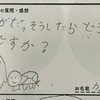 の質問・感想
がだっそうしたらどう
ですか？
お名前